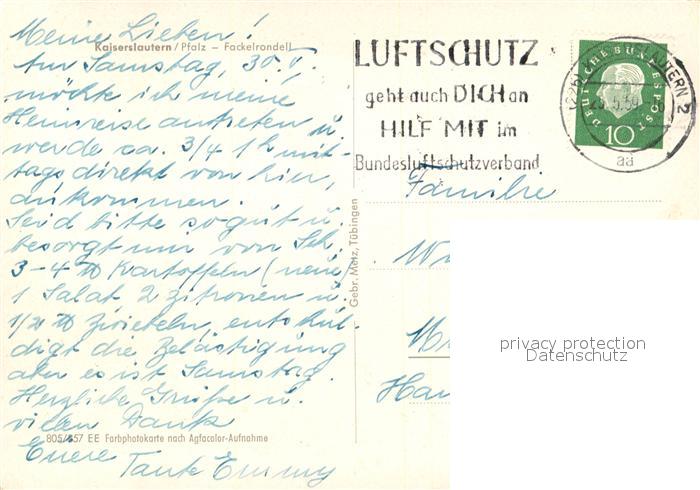 Kaiserslautern / Pfalz – Fackelrondell
Meine Lieben!
Am Samstag, 30. V.,
möchte ich meine
Heimreise antreten u.
werde ca. 3/4 1 h mit-
tags direkt von hier,
ankommen.
Seid bitte so gut u.
besorgt mir von Sch.
3-4 ℔ Kartoffeln (neue)
1 Salat 2 Zitronen u.
1/2 ℔ Zwiebeln, entschul-
digt die Belästigung
aber es ist Samstag.
Herzliche Grüße u.
vielen Dank
Euere Tante Emmy
805/557 EE Farbphotokarte nach Agfacolor-Aufnahme
Gebr. Metz, Tübingen
LUFTSCHUTZ
geht auch DICH an
HILF MIT im
Bundesluftschutzverband
DEUTSCHE BUNDESPOST
10
LAUTERN 2
5.59
aa
Familie
privacy protection
Datenschutz